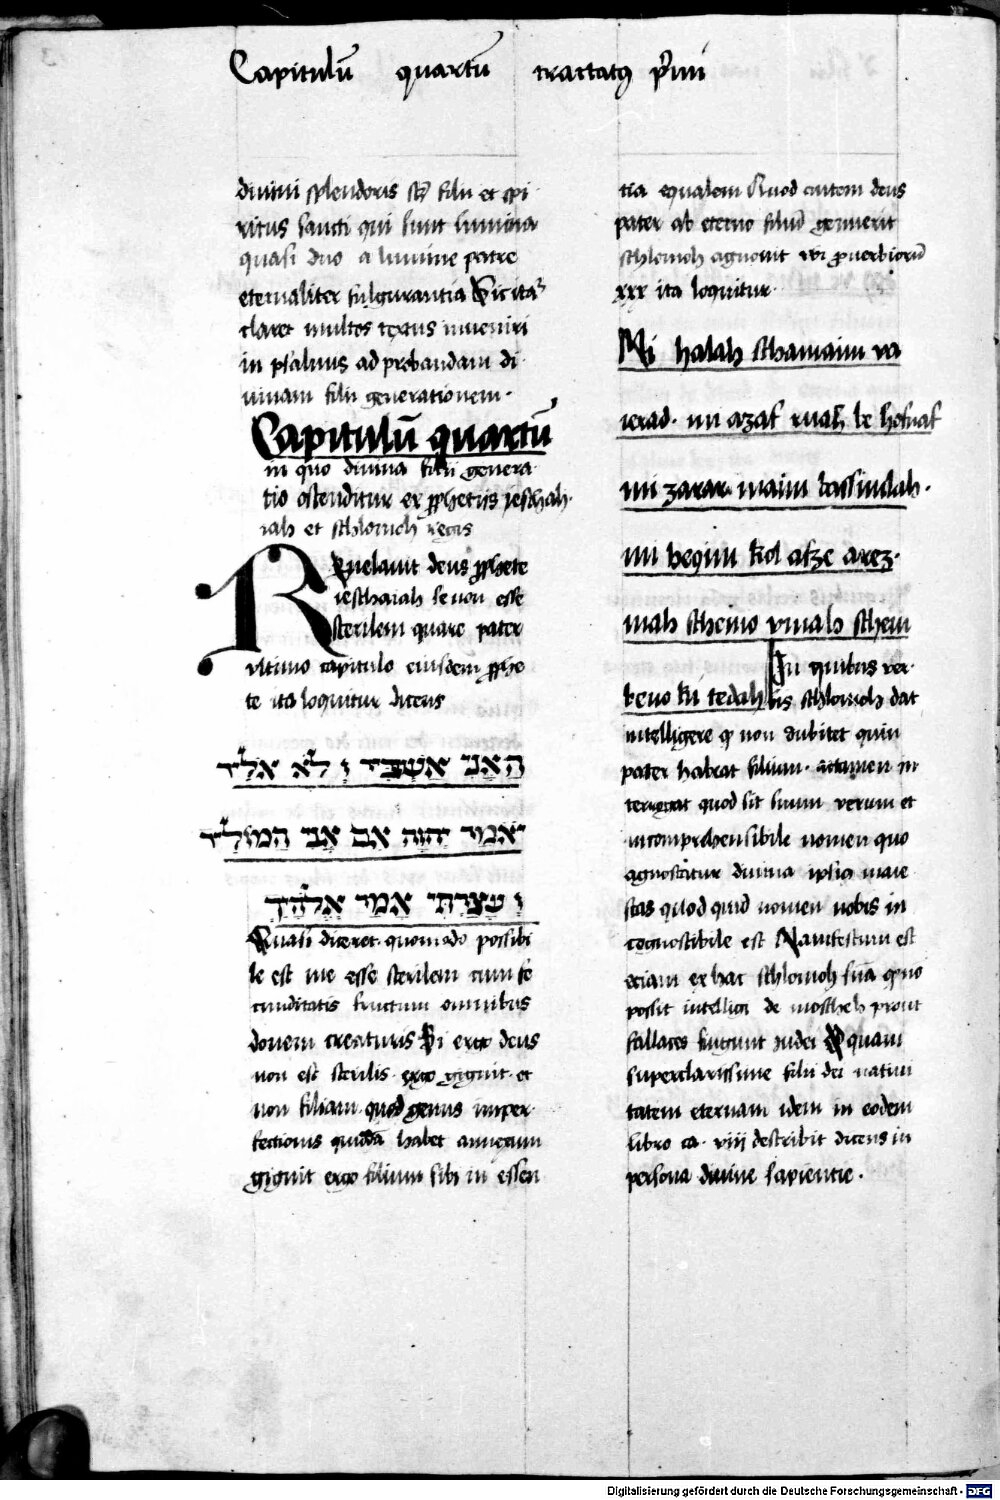 Capitulū quartū tractatꝰ p̄imi
divini splendoris sc̄ȝ filii et spi
ritus sancti qui sunt lumina
quasi duo a lumine patre
eternaliter fulgurantia Sic ita
claret multos textus inveniri
in psalmis ad probandam di
vinam filii generationem.
Capitulū quartū
in quo divina filii genera
tio ostenditur ex ꝓphetiis jeschah
iah et schlomoh regis
REvelavit deus ꝓphete
ieschaiah se non esse
sterilem quare pater
ultimo capitulo eiusdem ꝓphe
te ita loquitur dicens
הַאֲנִי אַשְׁבִּיר וְלֹא אֹלִיד
יֹאמַר יְהוָה אִם אֲנִי הַמּוֹלִיד
וְעָצַרְתִּי אָמַר אֱלֹהָיִךְ
Quasi diceret. quomodo possibi
le est me esse sterilem cum fe
cunditatis fructum omnibus
donem creaturis Si ergo deus
non est sterilis. ergo gignit. et
non filiam. quod genus imper
fectionis quidā habet annexum
gignit ergo filium sibi in essen
tia equalem Quod autem deus
pater ab eterno filiū genuerit
schlomoh agnovit ubi ꝓverbiorū
xxx ita loquitur.
Mi halah schamaim va
ierad. mi azaf ruah be hofnaf
mi zarar maim bassimlah.
mi heqim kol afze arez.
mah schemo umah schem
beno ki tedah In quibus ver
bis schlomoh dat
intelligere ꝙ non dubitet quin
pater habeat filium. attamen in
terrogat quod sit suum verum et
incomprehensibile nomen quo
agnoscatur divina ipsiꝰ maie
stas quod quid nomen nobis in
cognoscibile est Manifestum est
eciam ex hac schlomoh sn̄ia q̄ no
possit intelligi de moscheh prout
fallaces fingunt iudei Quam
superclarissime filii dei nativi
tatem eternam idem in eodem
libro ca. viij describit dicens in
persona divine sapientie.
Digitalisierung gefördert durch die Deutsche Forschungsgemeinschaft - DFG